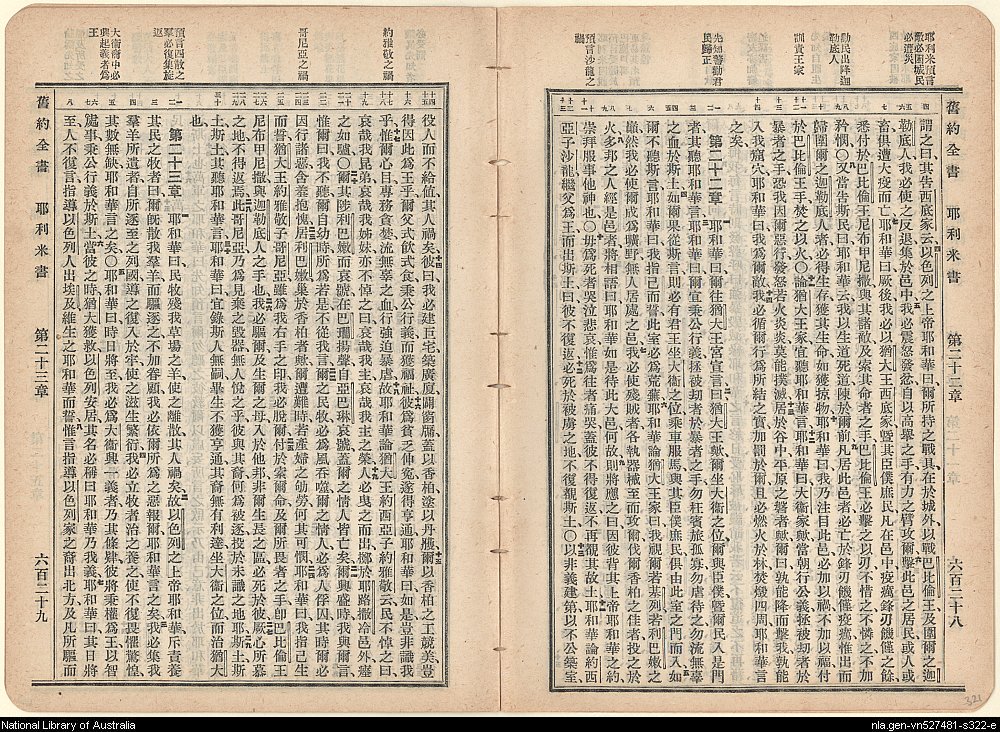 耶利米預言
敵必困城民
必遭災
勸民出降迦
勒底人
訓責王家
先知警勸君
民歸正
預言沙龍之
禍
舊約全書 耶利米書 第二十二章 六百二十八
謂之曰其告西底家云以色列之上帝耶和華曰爾所持之戰具在於城外以戰巴比倫王及圍爾之迦
勒底人我必使之反退集於邑中我必震怒發忿自以高舉之手有力之臂攻爾擊此邑之居民或人或
畜俱遭大疫而亡耶和華曰厥後我必以猶大王西底家暨其臣僕庶民凡在邑中自疫癘鋒刃饑饉之餘
悉付於巴比倫王尼布甲尼撒與其諸敵及索其命者之手巴比倫王必擊之以刃不惜之不憐之不加
矜憫〇又當告斯民曰耶和華云我以生道死道陳於爾前凡居此邑者必亡於鋒刃饑饉疫癘惟出而
歸圍爾之迦勒底人者必得生存獲其生命如獲掠物耶和華曰我乃注目此邑必加以禍不加以福付
於巴比倫王手焚之以火〇論猶大王家宜聽耶和華言耶和華曰大衞家歟當朝行公義拯被刧者於
暴者之手恐我因爾惡行發怒若火炎炎莫能撲滅居於谷中平原之磐者歟爾曰孰能降而擊我孰能
入我窟穴耶和華曰我爲爾敵我必循爾行爲所結之實加罰於爾且必燃火於林焚燬四周耶和華言
之矣
第二十二章 耶和華曰爾往猶大王宮宣言曰猶大王歟爾坐大衞之位爾與臣僕暨爾民入是門
者其聽耶和華言耶和華曰爾宜秉公行義拯被刧者於暴者之手勿枉賓旅孤寡勿虐待之勿流無辜
之血於斯土如爾果從斯言則必有君王坐大衞之位乘車服馬與其臣僕庶民俱由此室之門而入如
爾不聽斯言耶和華曰我指己而誓此室必爲荒蕪耶和華論猶大王家曰我視爾若基列若利巴嫩之
火顚然我必使爾成爲曠野無人居處之邑我必使殘賊者各執器械至而攻爾伐爾香柏之佳者投之於
火多邦之人必經是邑彼此相語曰耶和華如是待此大邑何故則將應之曰因彼背其上帝耶和華之約
崇拜服事他神也〇毋爲死者哭泣悲哀惟爲往者痛哭蓋彼不得復返不再覩其故土耶和華論約西
亞子沙龍繼父爲王而出斯土曰彼不復返必死於被虜之地不復覩斯土〇以非義建第以不公築室
約雅敬之禍
哥尼亞之禍
預言四散之
羣必復集旋
返
大衞裔中必
興起義者爲
王
舊約全書 耶利米書 第二十三章 六百二十九
役人而不給値其人禍矣彼曰我必建巨宅築廣廈闢窗牖蓋以香柏塗以丹雘爾以香柏之工競美豈
得因此爲王乎爾父式飲式食秉公行義而獲福祉彼爲貧乏伸寃遂得亨通耶和華曰如是豈非識我
乎惟爾心目專務貪婪流無辜之血行強迫暴虐故耶和華論猶大王約西亞子約雅敬云民不悼之曰
哀哉我昆弟哀哉我姊妹亦不悼之曰哀哉我主哀哉我主之榮人必曳之而出擲於耶路撒冷邑外瘞
之如驢〇爾其陟利巴嫩而哀號在巴珊揚聲自亞巴琳哀號蓋爾之情人皆亡矣爾興盛時我與爾言
惟爾曰我不聽爾自幼時所爲若是不從我言爾之民牧必爲風吞噬爾之情人必爲人俘囚其時爾必
因行諸惡含羞抱愧居利巴嫩巢於香柏者歟爾遭難時若產婦之劬勞何其可憫耶和華曰我指己生
而誓猶大王約雅敬子哥尼亞雖爲我右手之印我必脫爾付於索爾命及爾所畏者之手卽巴比倫王
尼布甲尼撒與迦勒底人之手也我必驅爾及生爾之母入於他邦非爾生長之區必死於彼厥心所慕
之地不得返焉此哥尼亞乃爲見棄之毀器無人悅之乎彼與其裔何爲被逐投於未識之地耶斯土斯
土斯土其聽耶和華言耶和華曰宜錄斯人無嗣畢生不獲亨通其裔無有利達坐大衞之位而治猶大
也
第二十三章 耶和華曰民牧殘我草場之羊使之離散其人禍矣故以色列之上帝耶和華斥責養
其民之牧者曰爾旣散我羣羊而驅逐之不加眷顧我必依爾所爲之惡報爾耶和華言之矣我必集我
羣羊所遣者自所逐至之列國導之復入於牢使之滋生繁衍我必立牧者治之養之使不復畏懼驚惶
其數無缺耶和華言之矣〇耶和華曰時日將至我必爲大衞興一義者乃其條肄彼將秉權爲王以智
處事秉公行義於斯土當彼之時猶大獲救以色列安居其名必稱曰耶和華乃我義耶和華曰其日將
至人不復言指導以色列人出埃及維生之耶和華而誓惟言指導以色列家之裔出北方及凡所驅而
321
National Library of Australia
nla.gen-vn527481-s322-e